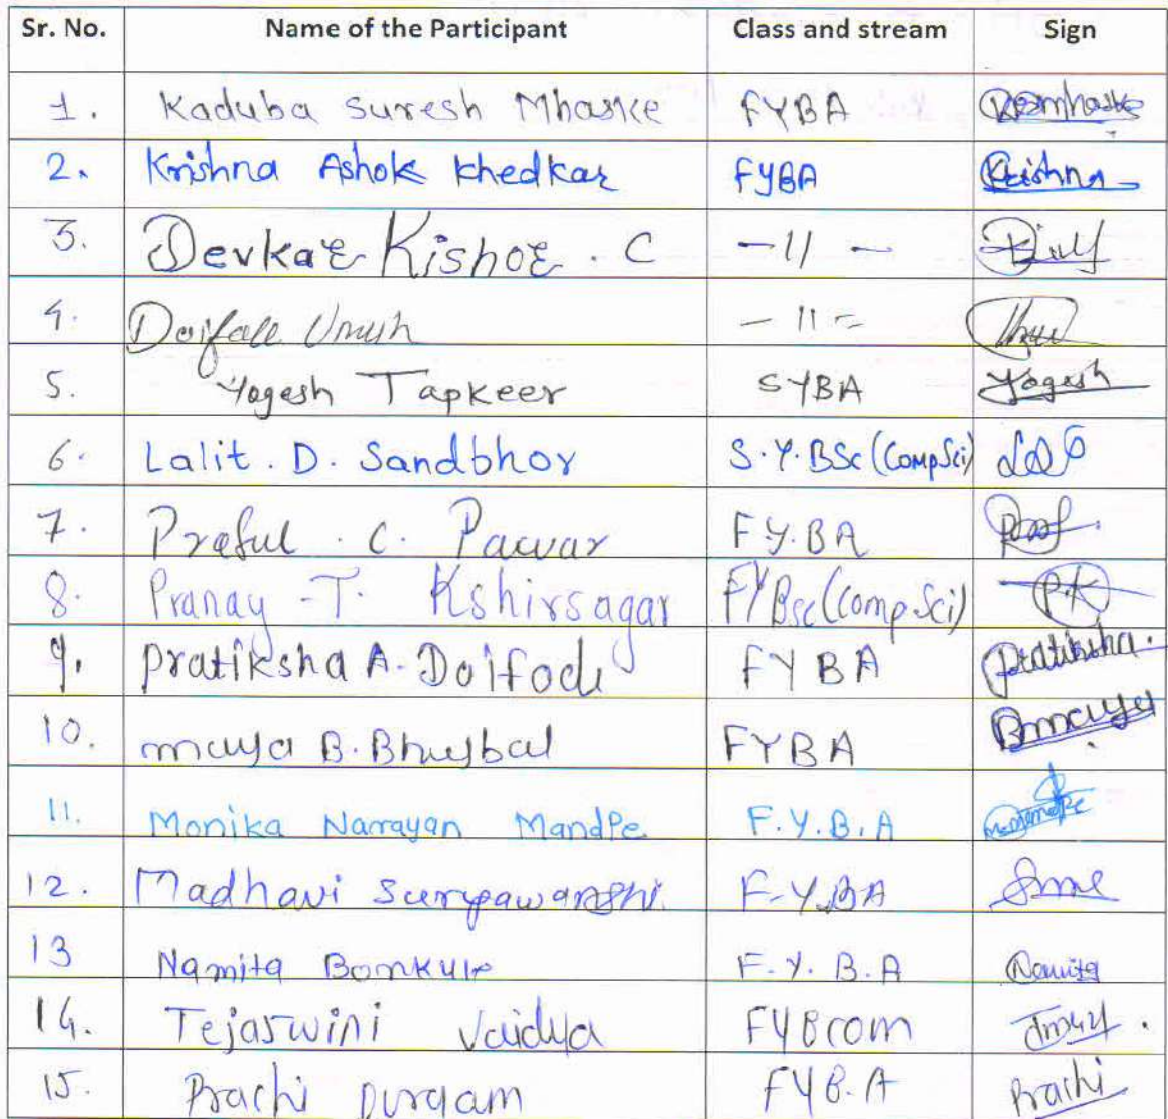 Sr. No. Name of the Participant Class and stream Sign
1. Kaduba Suresh Mhaske FYBA
2. Krishna Ashok Khedkar FYBA Krishna
3. Devkar Kishor . C -11-
4. Doifale Umesh -11-
5. Yogesh Tapkeer SYBA Yogesh
6. Lalit . D. Sandbhor S.Y.BSc (CompSci)
7. Praful . C. Pawar F.Y.BA
8. Pranay -T. Kshirsagar FYBsc (Comp Sci) P.K
9. Pratiksha A. Doifode FYBA Pratiksha.
10. maya B. Bhujbal FYBA Bmaya
11. Monika Narayan Mandpe F.Y.B.A
12. Madhavi Suryawanshi F.Y.BA
13 Namita Bonkule F.Y.B.A Namita
14. Tejaswini Vaidya FYBcom
15. Prachi Durgam FYB.A Prachi